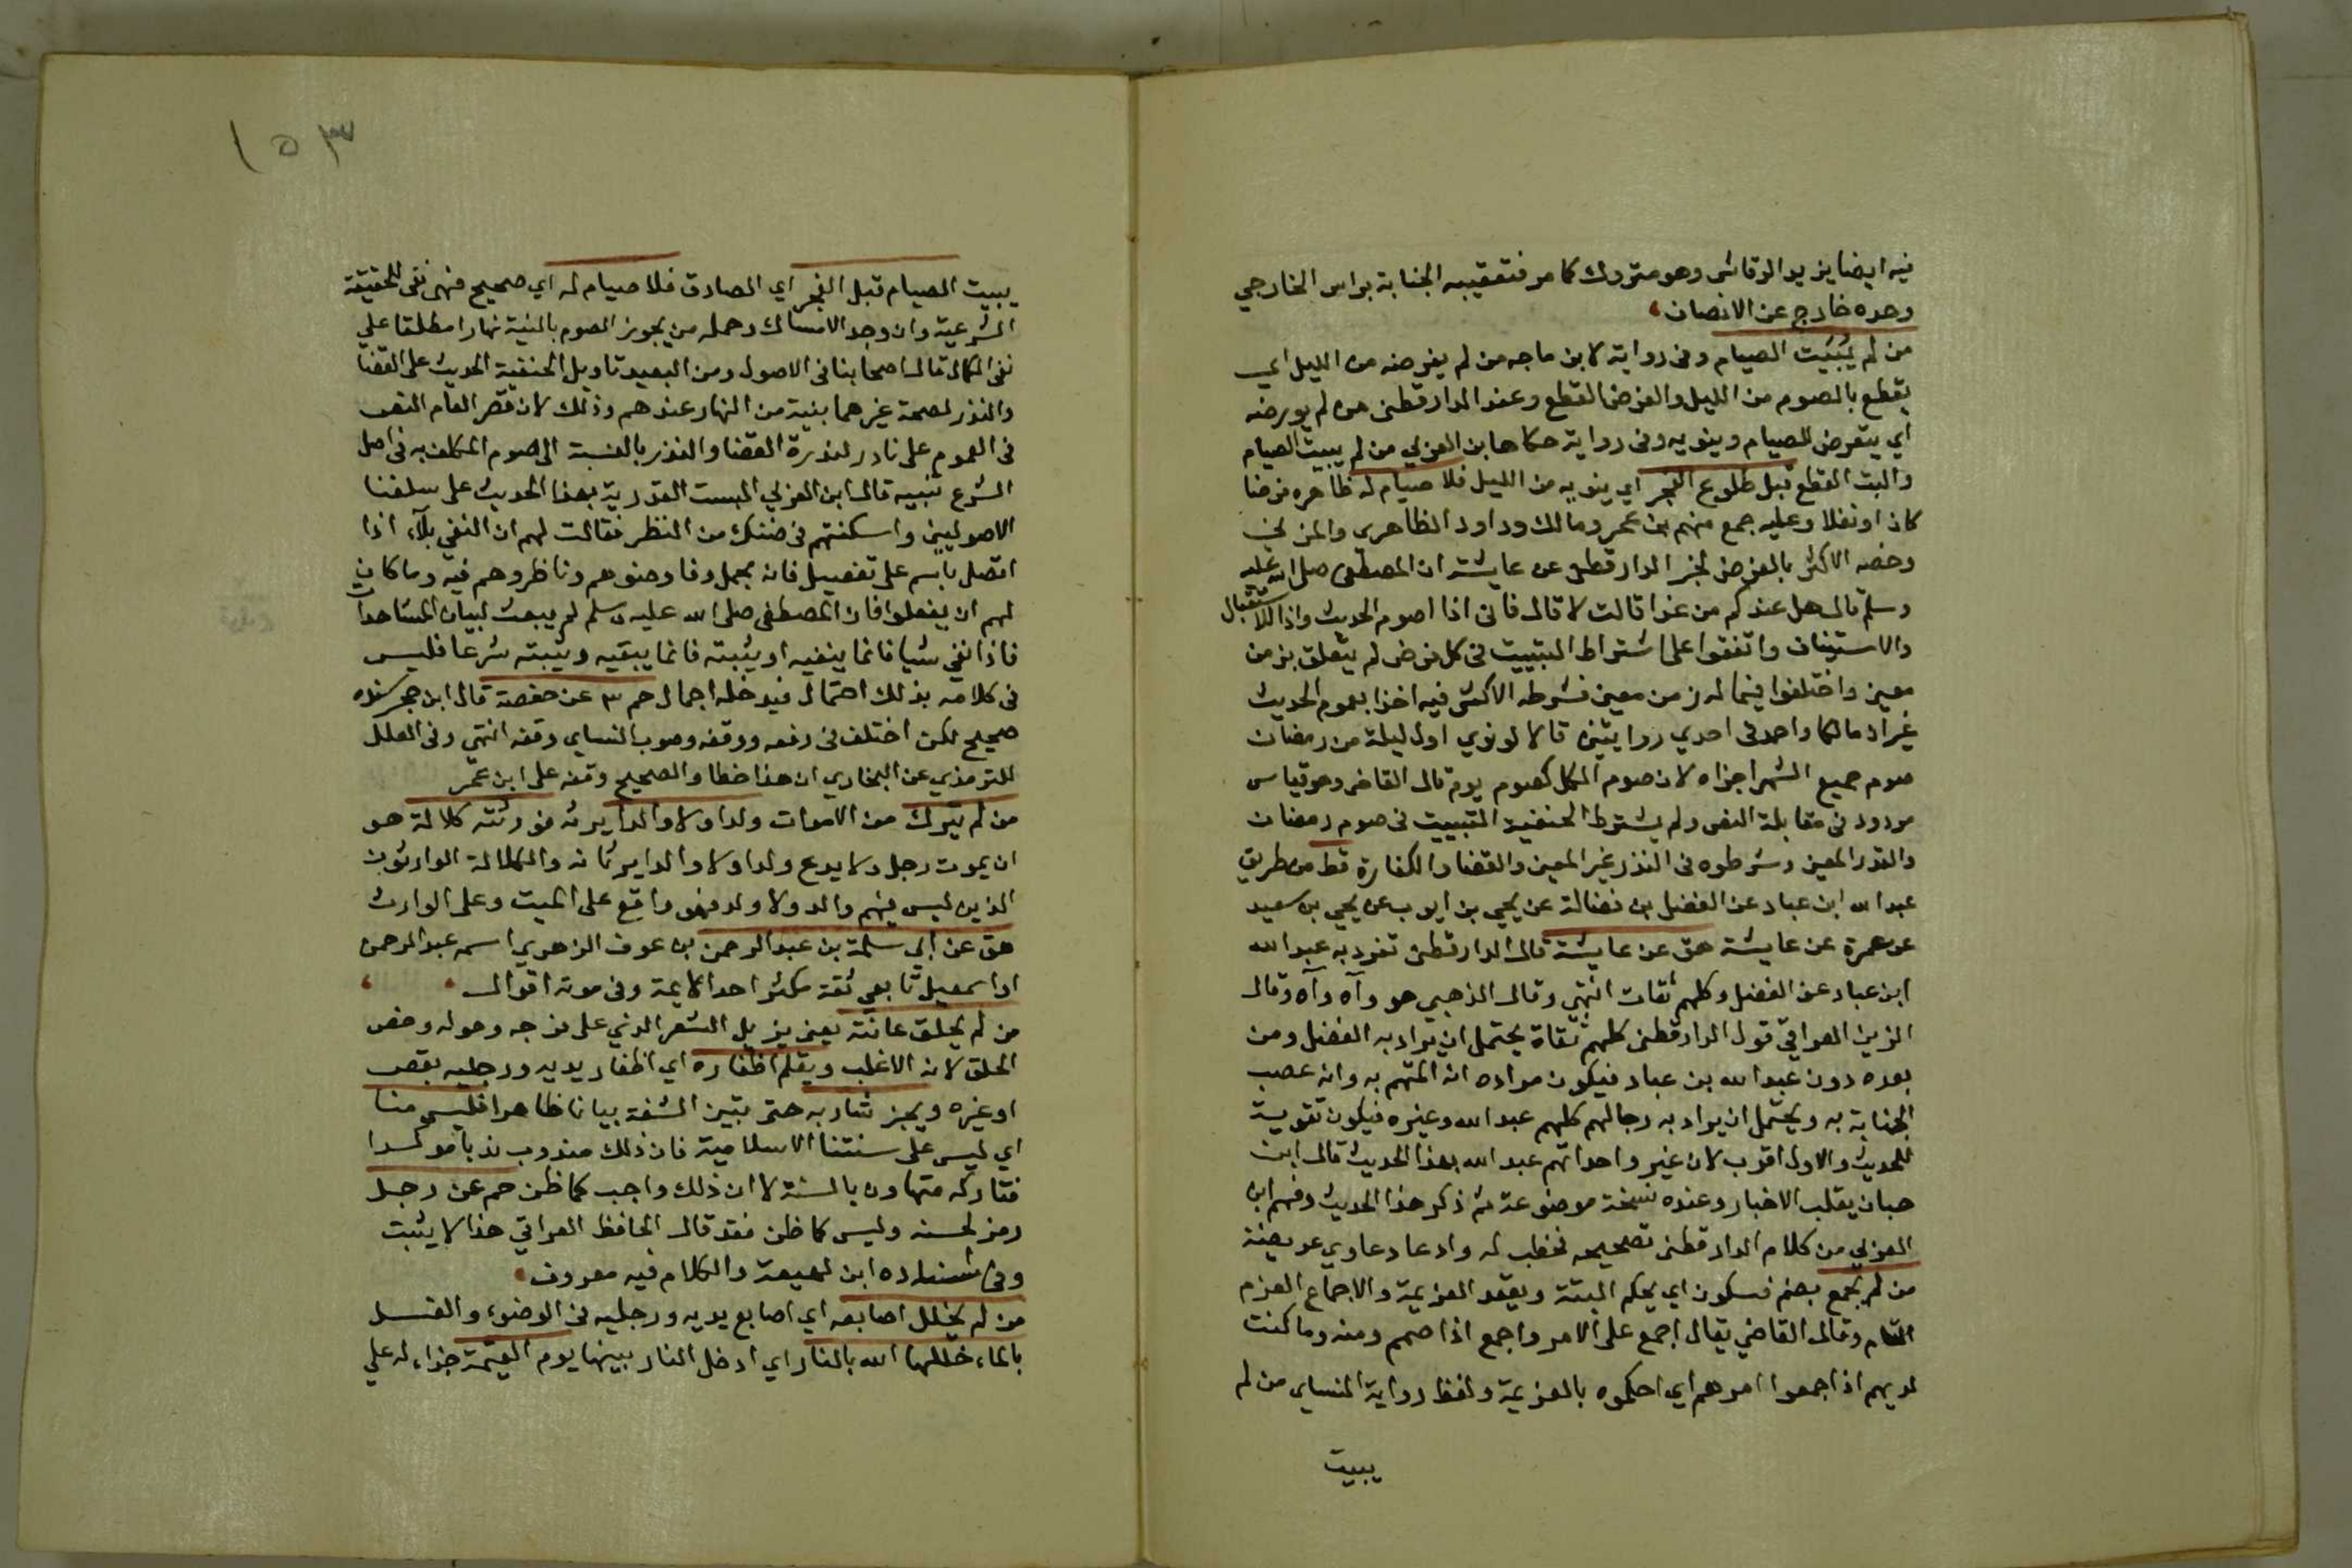 فيه ايضا يزيد الرقاشى وهو متروك كما مر فتعقيبه الجناية براس الخارجي
وحده خارج عن الانصاف
من لم يُبَيِّت الصيام وفى رواية لابن ماجه من لم يفرضه من الليل اي
يقطع بالصوم من الليل والفرض القطع وعند الدارقطنى من لم يورضه
اي يتعرض للصيام وينويه وفى رواية حكاها ابن العربي من لم يبيت الصيام
والبت القطع قبل طلوع الفجر اي ينويه من الليل فلا صيام له ظاهره فرضا
كان او نفلا وعليه جمع منهم ابن عمر ومالك وداود الظاهرى والمزني
وخصه الاكثر بالفرض لخبر الدارقطنى عن عايشة ان المصطفى صلى الله عليه
وسلم قال هل عندكم من غدا قالت لا قال فانى اذا اصوم الحديث واذا للاستقبال
والاستيناف واتفقوا على اشتراط التبييت فى كل فرض لم يتعلق بزمن
معين واختلفوا فيما له زمن معين فشرطه الاكثر فيه اخذا بعموم الحديث
غير ان مالكا واحمد فى احدي روايتين قالا لو نوي اول ليلة من رمضان
صوم جميع الشهر اجزاه لان صوم الكل كصوم يوم قال القاضى وهو قياس
مردود فى مقابلة النص ولم يشترط الحنفية التبييت فى صوم رمضان
والنذر المعين وشرطوه فى النذر غير المعين والقضا والكفارة قط من طريق
عبد الله ابن عباد عن الفضل بن فضالة عن يحيي بن ايوب عن يحيي بن سعيد
عن عمرة عن عايشة هق عن عايشة قال الدارقطنى تفرد به عبد الله
ابن عباد عن الفضل وكلهم ثقات انتهى وقال الذهبي هو وآه وآه وقال
الزين العراقي قول الدارقطنى كلهم ثقاة يحتمل ان يراد به الفضل ومن
بعده دون عبد الله بن عباد فيكون مراده انه المتهم به وانه عصب
الجناية به ويحتمل ان يراد به رجالهم كلهم عبد الله وغيره فيكون تقوية
للحديث والاول اقرب لان غير واحد اتهم عبد الله بهذا الحديث قال ابن
حبان يقلب الاخبار وعنده نسخة موضوعة ثم ذكر هذا الحديث وفهم ابن
العربي من كلام الدارقطنى تصحيحه فخطب له وادعا دعاوي عريضة
من لم يجمع بضم فسكون اي يحكم النية ويعقد العزيمة والاجماع العزم
التام وقال القاضي يقال اجمع على الامر واجمع اذا صمم ومنه وما كنت
لديهم اذ اجمعوا امرهم اي احكموه بالعزيمة ولفظ رواية النساى من لم
يبيت
١٥٣
يبيت الصيام قبل الفجر اي الصادق فلا صيام له اي صحيح فهى نفى للحقيقة
الشرعية وان وجد الامساك وحمله من يجوز الصوم بالنية نهارا مطلقا على
نفى الكمال قال اصحابنا فى الاصول ومن البعيد تاويل الحنفية الحديث على القضا
والنذر لصحة غيرهما بنية من النهار عندهم وذلك لان قصر العام النص
فى العموم على نادر لندرة القضا والنذر بالنسبة الى صوم المكلف به فى اصل
الشرع تنبيه قال ابن العربي البست القدرية بهذا الحديث على سلفنا
الاصوليين واسكنتهم فى ضنك من النظر فقالت لهم ان النفي بلآ، اذا
اتصل باسم على تفصيل فانه مجمل وفاوضوهم وناظروهم فيه وما كان
لهم ان يفعلوا فان المصطفى صلى الله عليه وسلم لم يبعث لبيان المشاهدات
فاذا نفي شيا فانما ينفيه او يثبته فانما يبقيه ويثبته شرعا فليس
فى كلامه بذلك احتمال فيدخله اجمال حم ٣ عن حفصة قال ابن حجر سنده
صحيح لكن اختلف فى رفعه ووقفه وصوب النساى وقفه انتهي وفى العلل
للترمذي عن البخاري ان هذا خطا والصحيح وقفه على ابن عمر
من لم يترك من الاموات ولدا ولا والدا يرثه فورثته كلالة هو
ان يموت رجل ولا يدع ولدا ولا والدا يرثانه والكلالة الوارثون
الذين ليس فيهم والد ولا ولد فهو واقع على الميت وعلى الوارث
هق عن ابي سلمة بن عبد الرحمن بن عوف الزهوي اسمه عبد الرحمن
او اسمعيل تابعي ثقة مكثر احد الايمة وفى موته اقوال
من لم يحلق عانته يعنى يزيل الشعر الذي على فرجه وحوله وخص
الحلق لانه الاغلب ويقلم اظفاره اي اظفار يديه ورجليه بقص
او غيره ويجز شاربه حتى تبين الشفة بيانا ظاهرا فليس منا
اي ليس على سنتنا الاسلامية فان ذلك مندوب ندبا موكدا
فتاركه متهاون بالسنة لا ان ذلك واجب كما ظن حم عن رجل
رمز لحسنه وليس كما ظن فقد قال الحافظ العراقي هذا لا يثبت
وفى اسناده ابن لهيعة والكلام فيه معروف
من لم يخلل اصابعه اي اصابع يديه ورجليه فى الوضوء والغسل
بالماء خللها الله بالنار اي ادخل النار بينها يوم القيمة جزاء له على